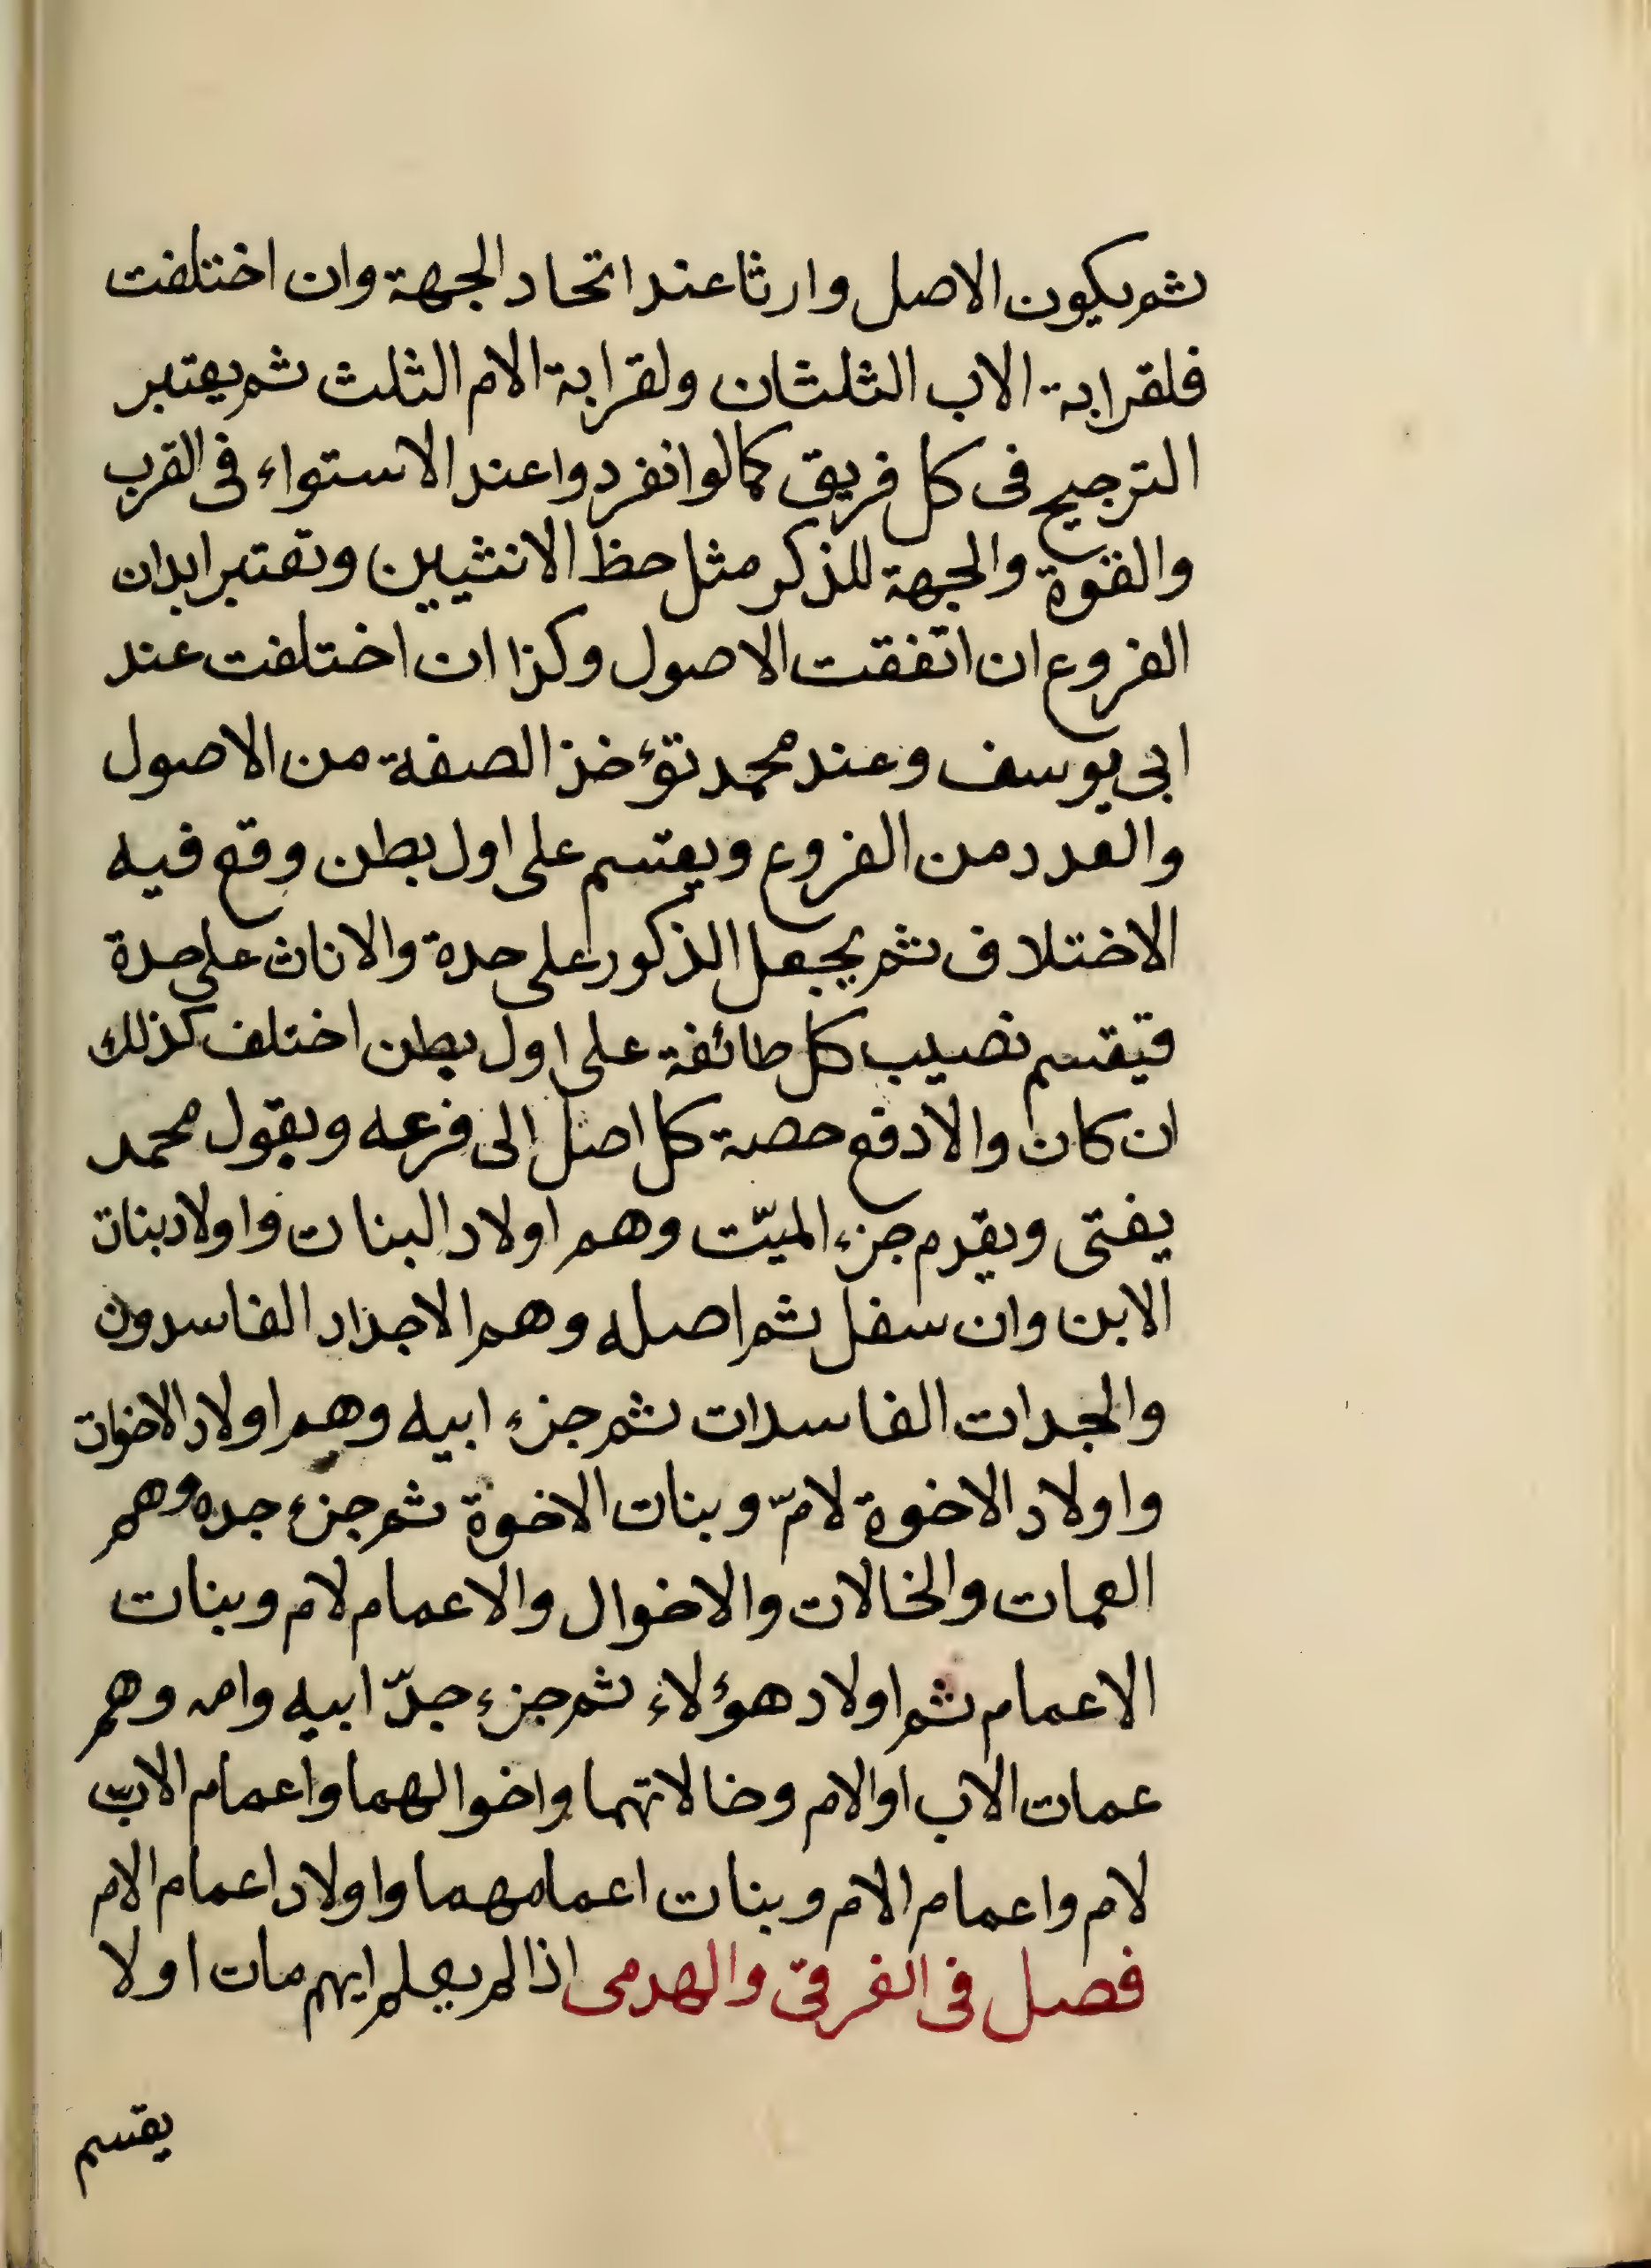 ثم يكون الاصل وارثا عند اتحاد الجهة وان اختلفت
فلقرابة الاب الثلثان ولقرابة الام الثلث ثم يعتبر
الترجيح فى كل فريق كما لو انفردوا عند الاستواء فى القرب
والقوة والجهة للذكر مثل حظ الانثيين وتعتبر ابدان
الفروع ان اتفقت الاصول وكذا ان اختلفت عند
ابى يوسف وعند محمد تؤخذ الصفة من الاصول
والعدد من الفروع ويقسم على اول بطن وقع فيه
الاختلاف ثم يجعل الذكور على حدة والاناث على حدة
فيقسم نصيب كل طائفة على اول بطن اختلف كذلك
ان كان والا دفع حصة كل اصل الى فرعه وبقول محمد
يفتى ويقدم جزء الميّت وهم اولاد البنات واولاد بنات
الابن وان سفل ثم اصله وهم الاجداد الفاسدون
والجدات الفاسدات ثم جزء ابيه وهم اولاد الاخوات
واولاد الاخوة لامّ وبنات الاخوة ثم جزء جده وهم
العمات والخالات والاخوال والاعمام لام وبنات
الاعمام ثم اولاد هؤلاء ثم جزء جدّ ابيه وامه وهم
عمات الاب او الام وخالاتهما واخوالهما واعمام الاب
لام واعمام الام وبنات اعمامهما واولاد اعمام الام
فصل فى الغرقى والهدمى اذا لم يعلم ايهم مات اولا
يقسم